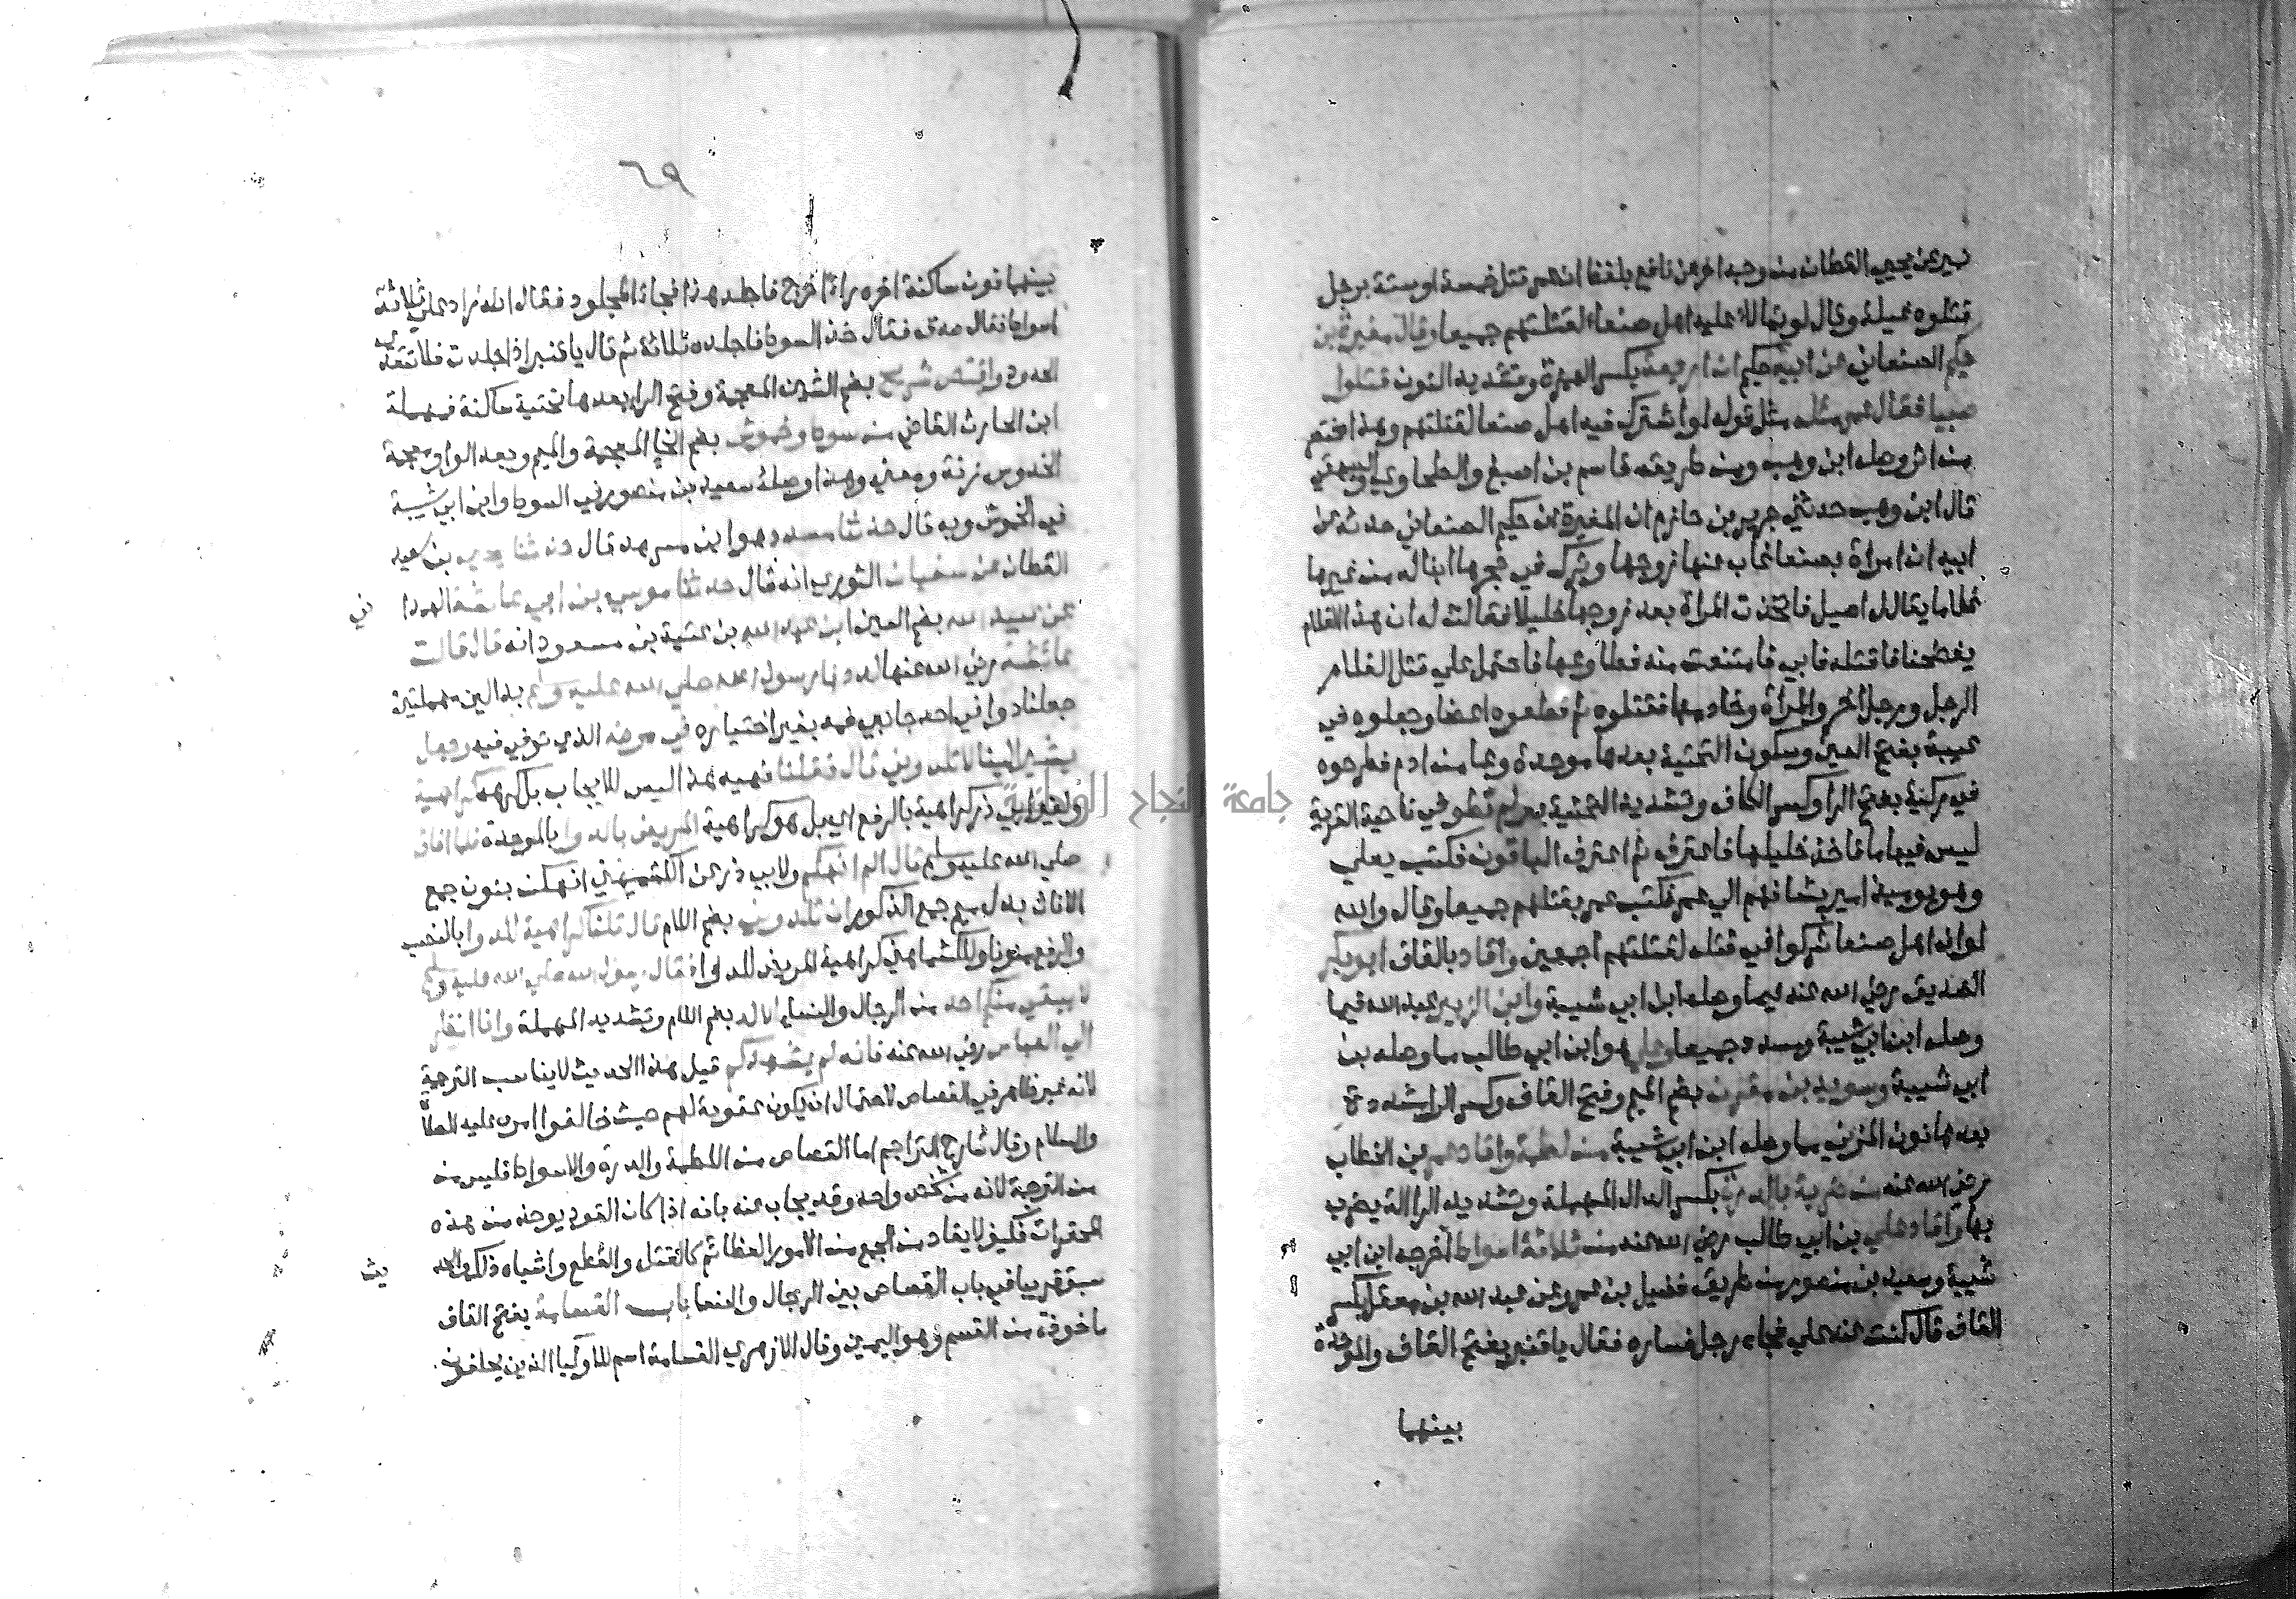 نمير عن يحيى القطان من وجه اخر عن نافع بلفظ ان عمر قتل خمسة او ستة برجل
قتلوه غيلة وقال لو تمالا عليه اهل صنعا لقتلتهم جميعا وقال مغيرة بن
حكيم الصنعاني عن ابيه حكيم ان اربعة بكسر الهمزة وتشديد النون قتلوا
صبيا فقال عمر مثله مثل قوله لو اشترك فيه اهل صنعا لقتلتهم وهذا مختصر
من اثر وصله ابن وهب ومن طريقه قاسم بن اصبغ والطحاوي والبيهقي
قال ابن وهب حدثني جرير بن حازم ان المغيرة بن حكيم الصنعاني حدثه عن
ابيه ان امراة بصنعا غاب عنها زوجها وترك في حجرها ابنا له من غيرها
غلاما يقال له اصيل فاتخذت المراة بعد زوجها خليلا فقالت له ان هذا الغلام
يفضحنا فاقتله فابي فامتنعت منه فطاوعها فاجتمع علي قتل الغلام
الرجل ورجل اخر والمراة وخادمها فقتلوه ثم قطعوه اعضا وجعلوه في
عيبة بفتح العين وسكون التحتية بعدها موحدة وعا من ادم فطرحوه
في ركية بفتح الرا وكسر الكاف وتشديد التحتية بير لم تطو في ناحية القرية
ليس فيها ما فاخذ خليلها فاعترف ثم اعترف الباقون فكتب يعلي
وهو يوميذ امير بشانهم الي عمر فكتب عمر بقتلهم جميعا وقال والله
لو ان اهل صنعا شركوا في قتله لقتلتهم اجمعين واقاد بالقاف ابو بكر
الصديق رضي الله عنه فيما وصله ابن ابي شيبة وابن الزبير عبد الله فيما
وصله ابن ابي شيبة ومسدد جميعا وعلي هو ابن ابي طالب مما وصله بن
ابي شيبة وسويد بن مقرن بضم الميم وفتح القاف وكسر الرا مشددة
بعدها نون المزني مما وصله ابن ابي شيبة من لطمة واقاد عمر بن الخطاب
رضي الله عنه من ضربة بالدرة بكسر الدال المهملة وتشديد الرا الة يضرب
بها واقاد علي بن ابي طالب رضي الله عنه من ثلاثة اسواط اخرجه ابن ابي
شيبة وسعيد بن منصور من طريق فضيل بن عمرو عن عبد الله بن معقل بكسر
القاف قال كنت عند علي فجاه رجل فساره فقال يا قنبر بفتح القاف والموحدة
بينهما
٦٩
بينهما نون ساكنة اخره راء اخرج فاجلد هذا فجاء المجلود فقال انه زاد علي ثلاثة
اسواط فقال صدق فقال خذ السوط فاجلده ثلاثة ثم قال يا قنبر اذا جلدت فلا تتعدي
الحدود واقتص شريح بضم الشين المعجمة وفتح الرا بعدها تحتية ساكنة فمهملة
ابن الحارث القاضي من سوط وخموش بضم الخا المعجمة والميم وبعد الواو معجمة
الخدوش زنة ومعني وهذا وصله سعيد بن منصور في السوط وابن ابي شيبة
في الخموش وبه قال حدثنا مسدد وهو ابن مسرهد قال حدثنا يحيى بن سعيد
القطان عن سفيان الثوري انه قال حدثنا موسي بن ابي عائشة الهمدا ني
عن عبيد الله بضم العين ابن عبد الله بن عتبة بن مسعود انه قال قالت
عائشة رضي الله عنها لددنا رسول الله صلي الله عليه وسلم بدالين مهملتين
جعلنا دوا في احد جانبي فمه بغير اختياره في مرضه الذي توفي فيه وجعل
يشير الينا لا تلدوني قال فقلنا نهيه هذا ليس للايجاب بل كرهه كراهية
ولغير ابي ذر كراهية بالرفع اي بل هو كراهية المريض بالدوا بالموحدة فلما افاق
صلي الله عليه وسلم قال الم انهكم ولابي ذر عن الكشميهني انهكن بنون جمع
الاناث بدل ميم جمع الذكور ان تلدوني بضم اللام قال قلنا كراهية للدوا بالنصب
والرفع منونا وللكشميهني كراهية المريض للدوا فقال رسول الله صلي الله عليه وسلم
لا يبقي منكم احد من الرجال والنساء الا لد بضم اللام وتشديد المهملة وانا انظر
الي العباس رضي الله عنه فانه لم يشهدكم قيل هذا الحديث لا يناسب الترجمة
لانه غير ظاهر في القصاص لاحتمال ان يكون عقوبة لهم حيث خالفوا امره عليه الصلاة
والسلام وقال شارح التراجم اما القصاص من اللطمة والدرة والاسواط فليس من
من الترجمة لانه من شخص واحد وقد يجاب عنه بانه اذا كان القود يوخذ من هذه
المحقرات فكيف لا يقاد من الجمع من الامور العظائم كالقتل والقطع واشباه ذلك والحد يث
سبق قريبا في باب القصاص بين الرجال والنسا باب القسامة بفتح القاف
ماخوذة من القسم وهو اليمين وقال الازهري القسامة اسم للاوليا الذين يحلفون
جامعة النجاح الوطنية